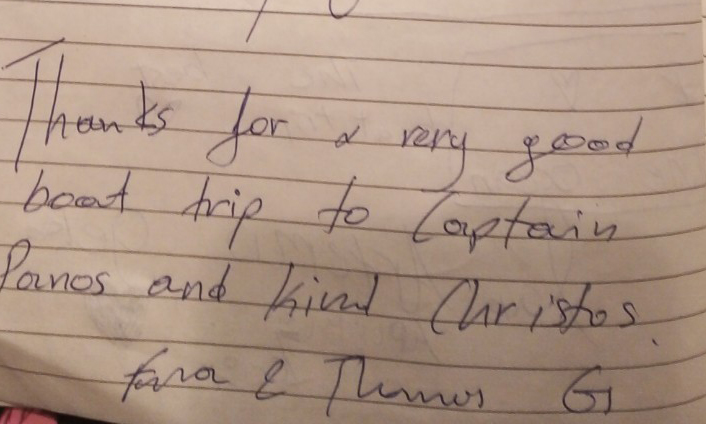 Thanks for a very good
boat trip to Captain
Panos and kind Christos.
& G